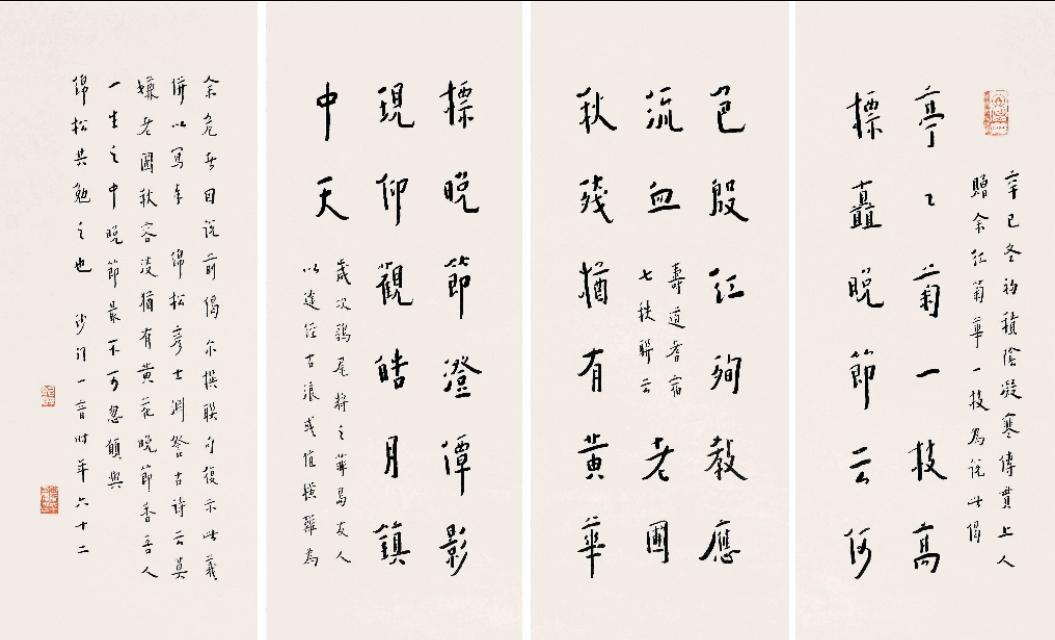 辛巳冬初積陰凝寒傳貫上人
贈余紅菊華一枝為說此偈
亭々菊一枝高
標矗晚節云何
色殷紅殉教應
流血
壽道耆宿
七秩聯云
老圃
秋殘猶有黃華
標晚節澄潭影
現仰觀皓月鎮
中天
歲次鶉尾將之華島友人
以違經古浪或值橫難為
余危告自說前偈亦撰聯句復示此義
併以寫奉 錦松彥士淵詧古詩云莫
嫌老圃秋容淡猶有黃花晚節香吾人
一生之中晚節最不可忽願與
錦松共勉之也 沙門一音時年六十二